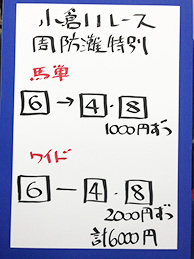 小倉11レース
周防灘特別
馬単
6→4・8
1000円ずつ
ワイド
6－4・8
2000円ずつ
計6000円